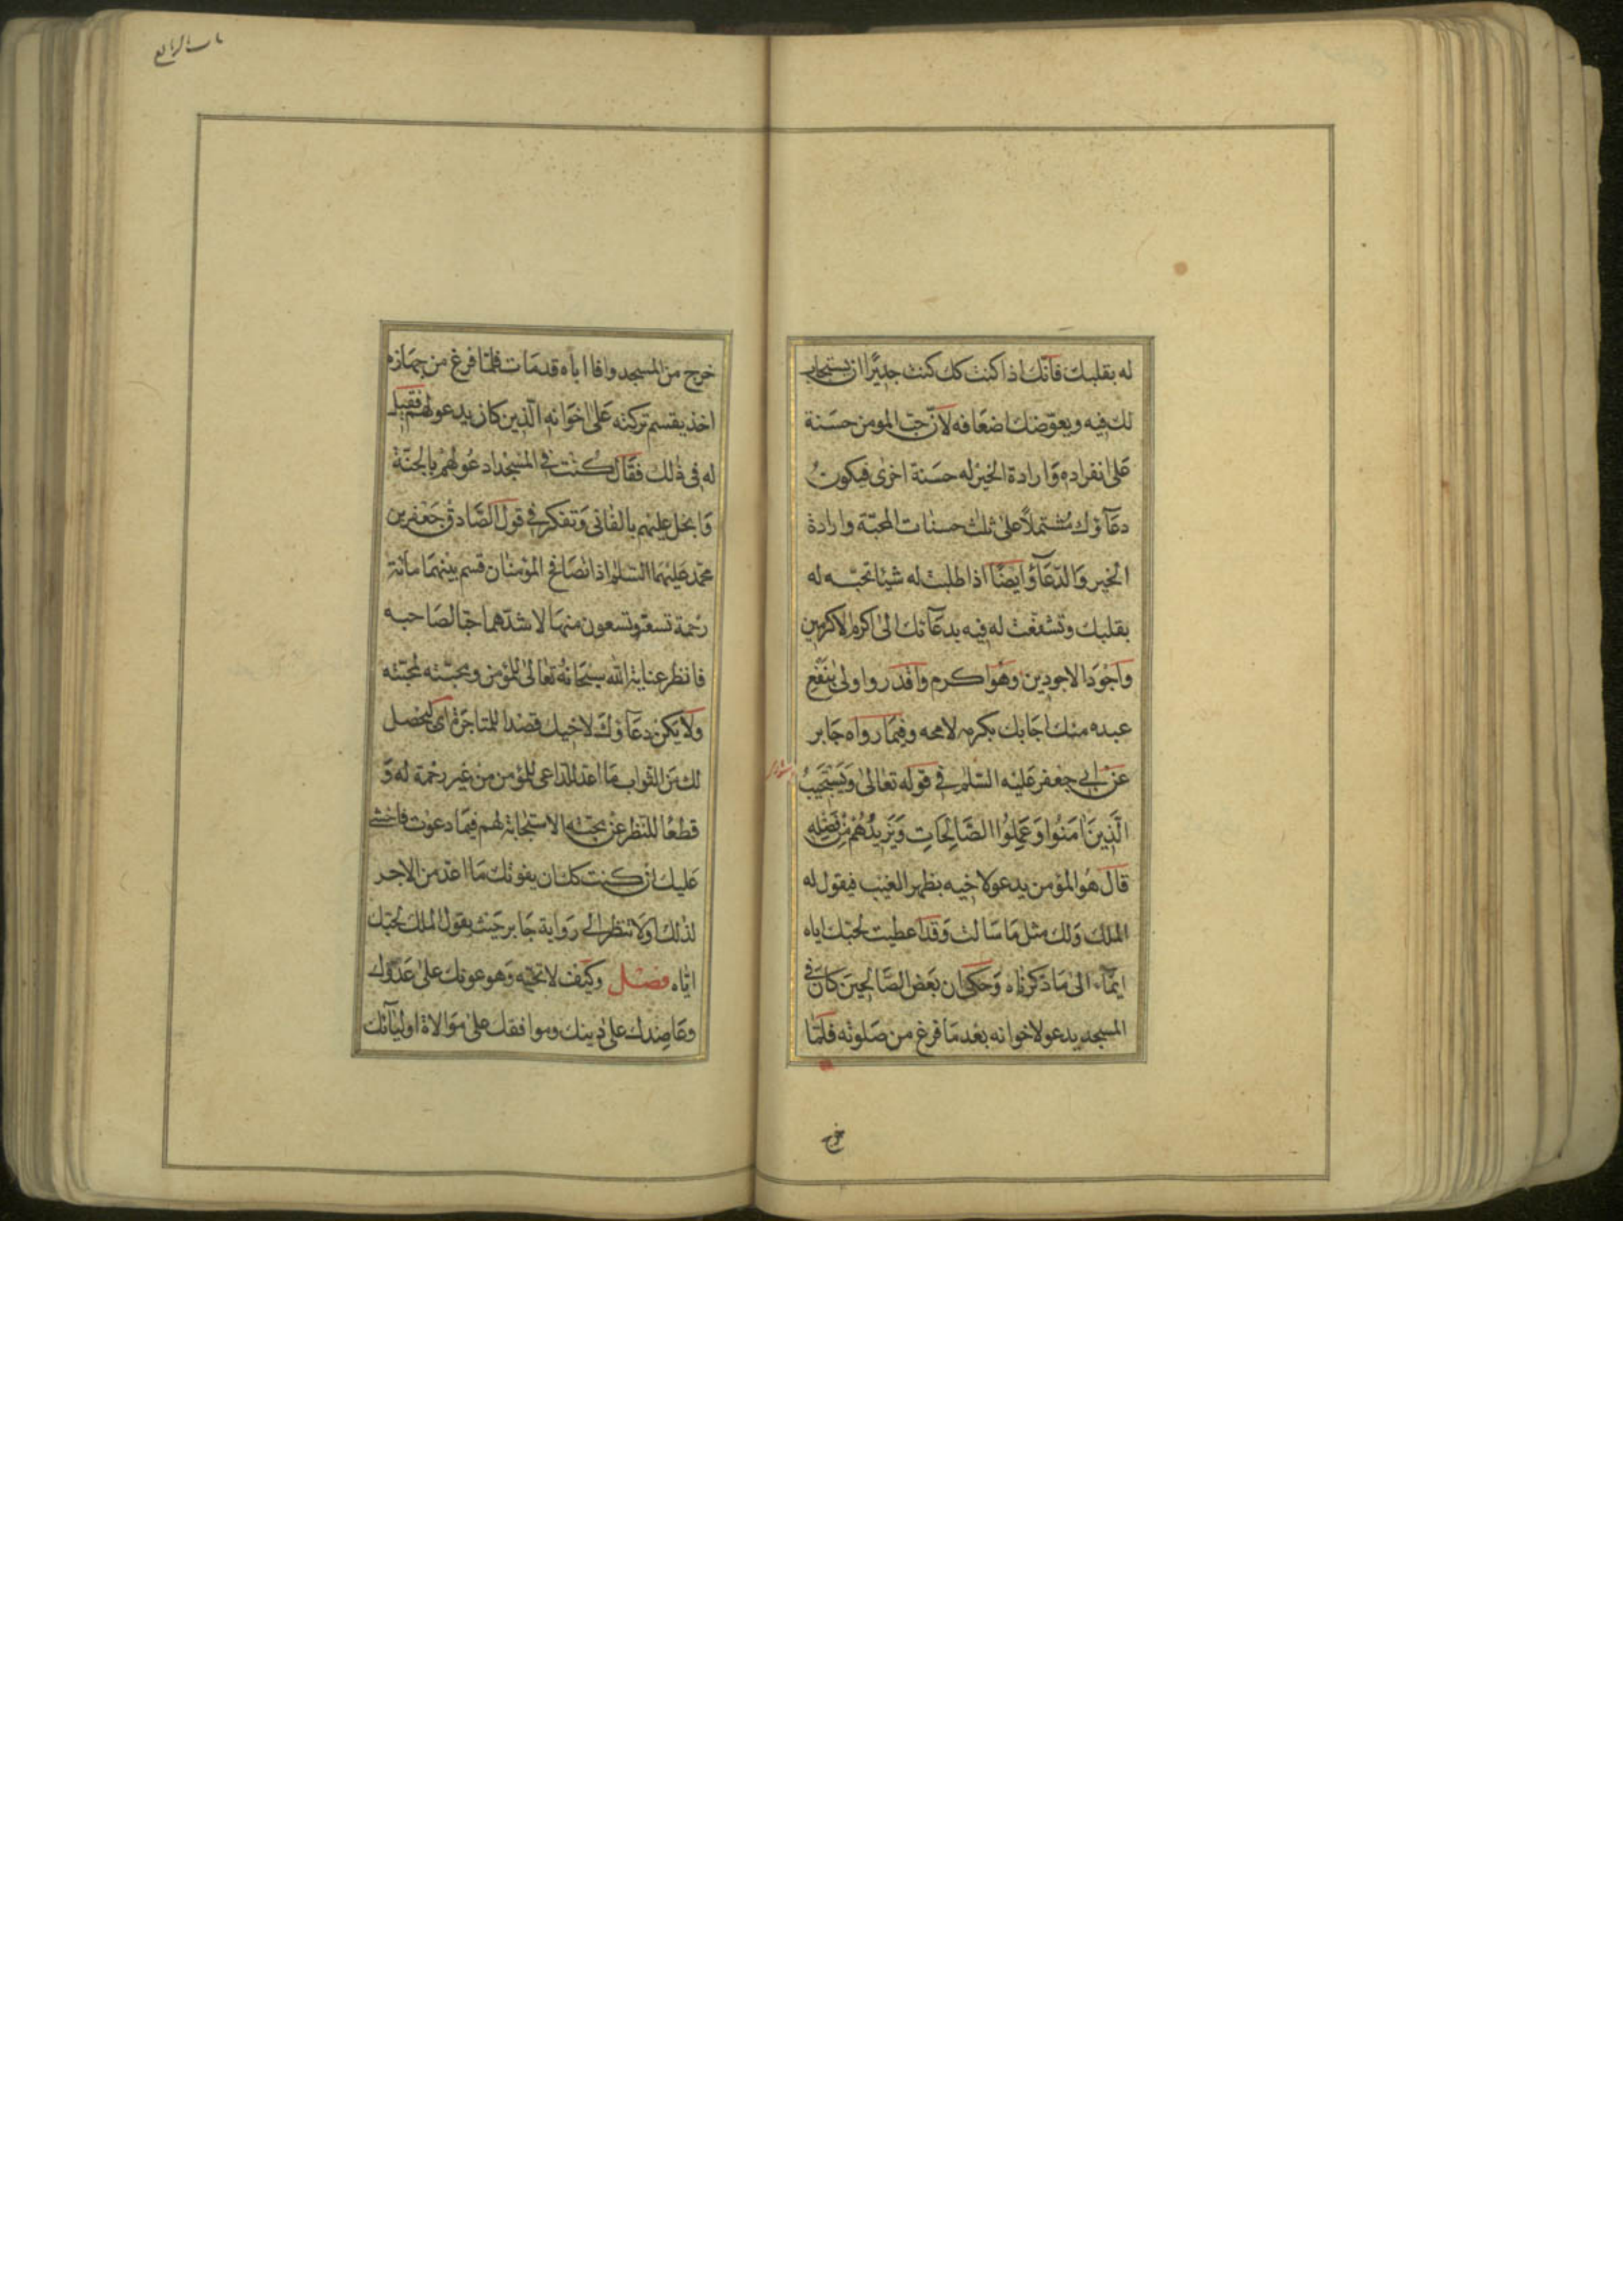 له بقلبك فانّك اذا كنت كك كنت جديرًا ان يستجاب
لك فيه ويعوّضك اضعافه لانّ حبّ المومن حسَنة
عَلى انفراده وَارادة الخير له حسَنة اخرٰى فيكونُ
دعَآؤك مُشتملًا علىٰ ثلث حسنات المحبّة وارادة
الخير وَالدّعَآؤ ايضًا اذا طلبت له شيئا تحبّه له
بقلبك وتشفّعت له فيه بدعَآئك الىٰ اكرم الاكرمين
وَاجوَد الاجودين وهَو اكرم وَاقدر واولىٰ بنفع
عبده منك اجَابك بكرمه لامحه وفيمَا رواه جَابر
عَنْ ابي جعْفر عَليْه السّلم في قوله تعالىٰ وَيَسْتَجِيبُ
الَّذِينَ اٰمَنُوا وَعَمِلُوا الصَّالِحَاتِ وَيَزِيدُهُمْ مِنْ فَضْلِهِ
قالَ هُو المؤمن يدعو لاخيه بظهر الغيْب فيقول له
الملك وَلك مثل مَا سَالت وَقد اعطيت لحبّك اياه
ايمَآء الىٰ مَا ذكرناه وَحكى ان بَعْض الصّالحينَ كَان في
المسجد يدعو لاخوانه بعْد مَا فرغ من صَلوٰته فلَمّا
خرج
باب الرابع
خرج من المسجد وافا اباه قد مَات فلمّا فرغ من جهَازه
اخذ يقسّم تركته عَلى اخوَانه الّذين كان يدعو لهم فقيل
له في ذٰلك فقَال كنْت في المسْجد ادعُو لهُمْ بالجنّة
وَابخل عليْهم بالفَانى وَتفكر في قول الصَّادق جَعْفر بن
محمّد عَليْهمَا السّلم اذا تصَافح المؤمنان قسم بيْنهمَا مائة
رحْمة تسعة وتسعون منهَا لاشدّهما حبّا لصَاحبه
فانظر عناية الله سبْحَانهُ تعَالىٰ للمؤمن ومحبّته لمحبّته
ولا يكن دعَآؤك لاخيك قصْدا للمتاجَرة اى ليحْصل
لك مَن الثواب مَا اعدّ للداعى للمؤمن منْ غير رحْمة له وَ
قطعًا للنّظر عَنْ محبّته الاستجابة لهم فيمَا دعوْت فاخشى
عَليك ان كنت كك ان يفوتك مَا اعدّ من الاجر
لذٰلك اولَا تنظر الى روَاية جَابر حيْث يقول الملك لحبّك
ايّاه فصْل وكيْف لا تحبّه وَهو عونك علىٰ عَدوّك
وعَاضِدك علىٰ دِينك وموافقك علىٰ موَالاة اوليَآئك